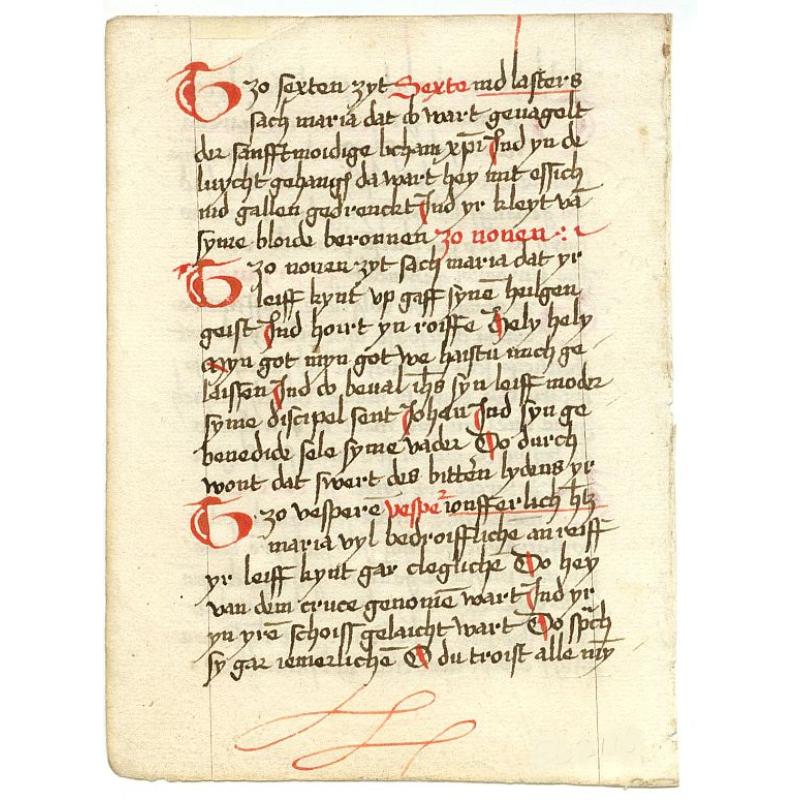 Tzo sexten zyt Sexte ind lasters
sach maria dat do wart genagelt
der sanfftmoidige licham xpi Ind yn de
luycht gehangē da wart hey mit essich
ind gallen gedrenckt Ind yr kleyt vā
syme bloide beronnen zo nonen :
Tzo nonen zyt sach maria dat yr
leiff kynt vp gaff synē hilgen
geist Ind hoirt yn roiffe Hely hely
Myn got myn got we haistu mich ge
laissen Ind do beual ihs syn leiff moder
syme discipel sent Johan Ind syn ge
benedide sele syme vader Do durch
wont dat swert des bittērn lydens yr
Tzo vesperē vesper ionfferlich htz
maria vyl bedroiffliche an reiff
yr leiff kynt gar cleglichē Do hey
van dem cruce genomē wart Ind yr
yn yrē schoiss gelaicht wart Do sprch
sy gar iemerlichē O du troist alle my